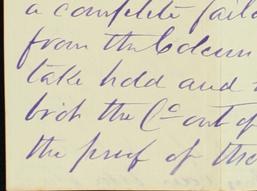 a complete fail
from the Colum
take hold and
both the Co. out of
the proof of the